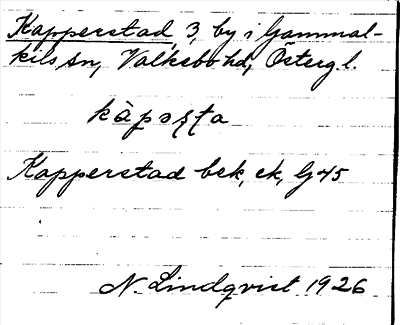 Kapperstad 3, by i Gammal-
kils sn, Valkebo hd, Östergl.
kàpəṣṭa
Kapperstad bek, ek, G45
N. Lindqvist 1926